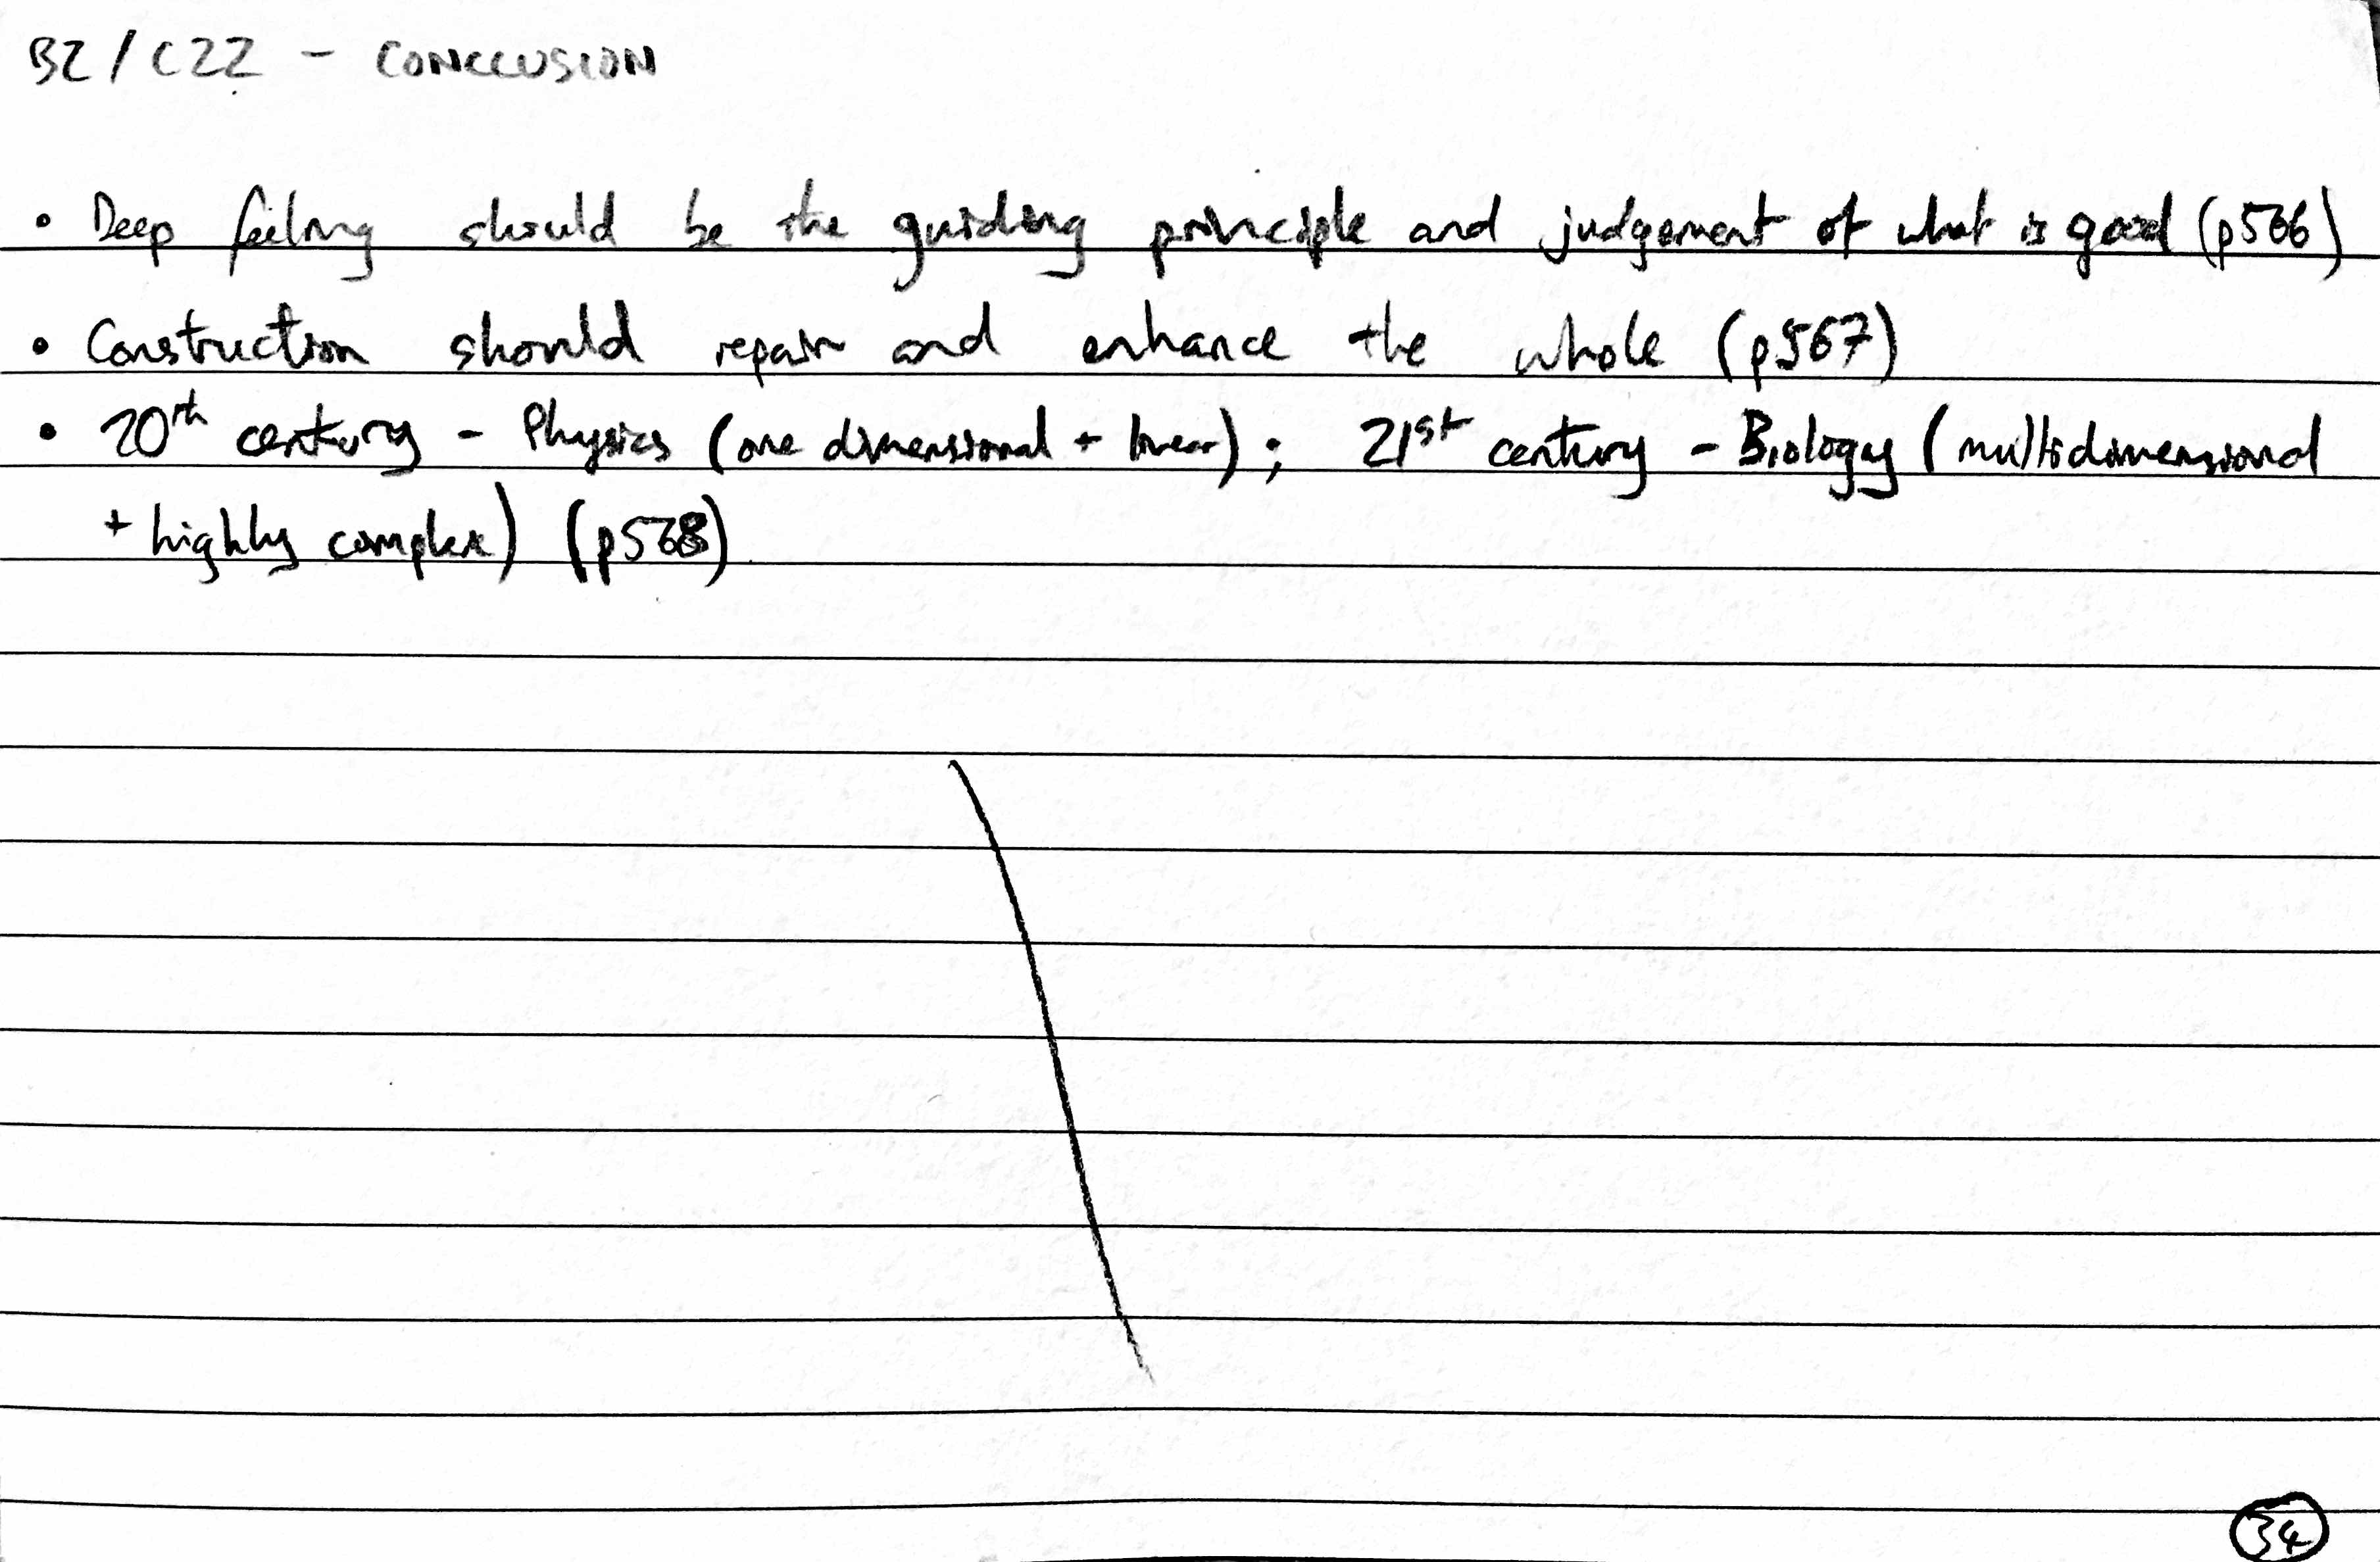 B2/C22 - CONCLUSION
• Deep feeling should be the guiding principle and judgement of what is good (p566)
• Construction should repair and enhance the whole (p567)
• 20th century - Physics (one dimensional + linear); 21st century - Biology (multidimensional
+ highly complex) (p568)
34